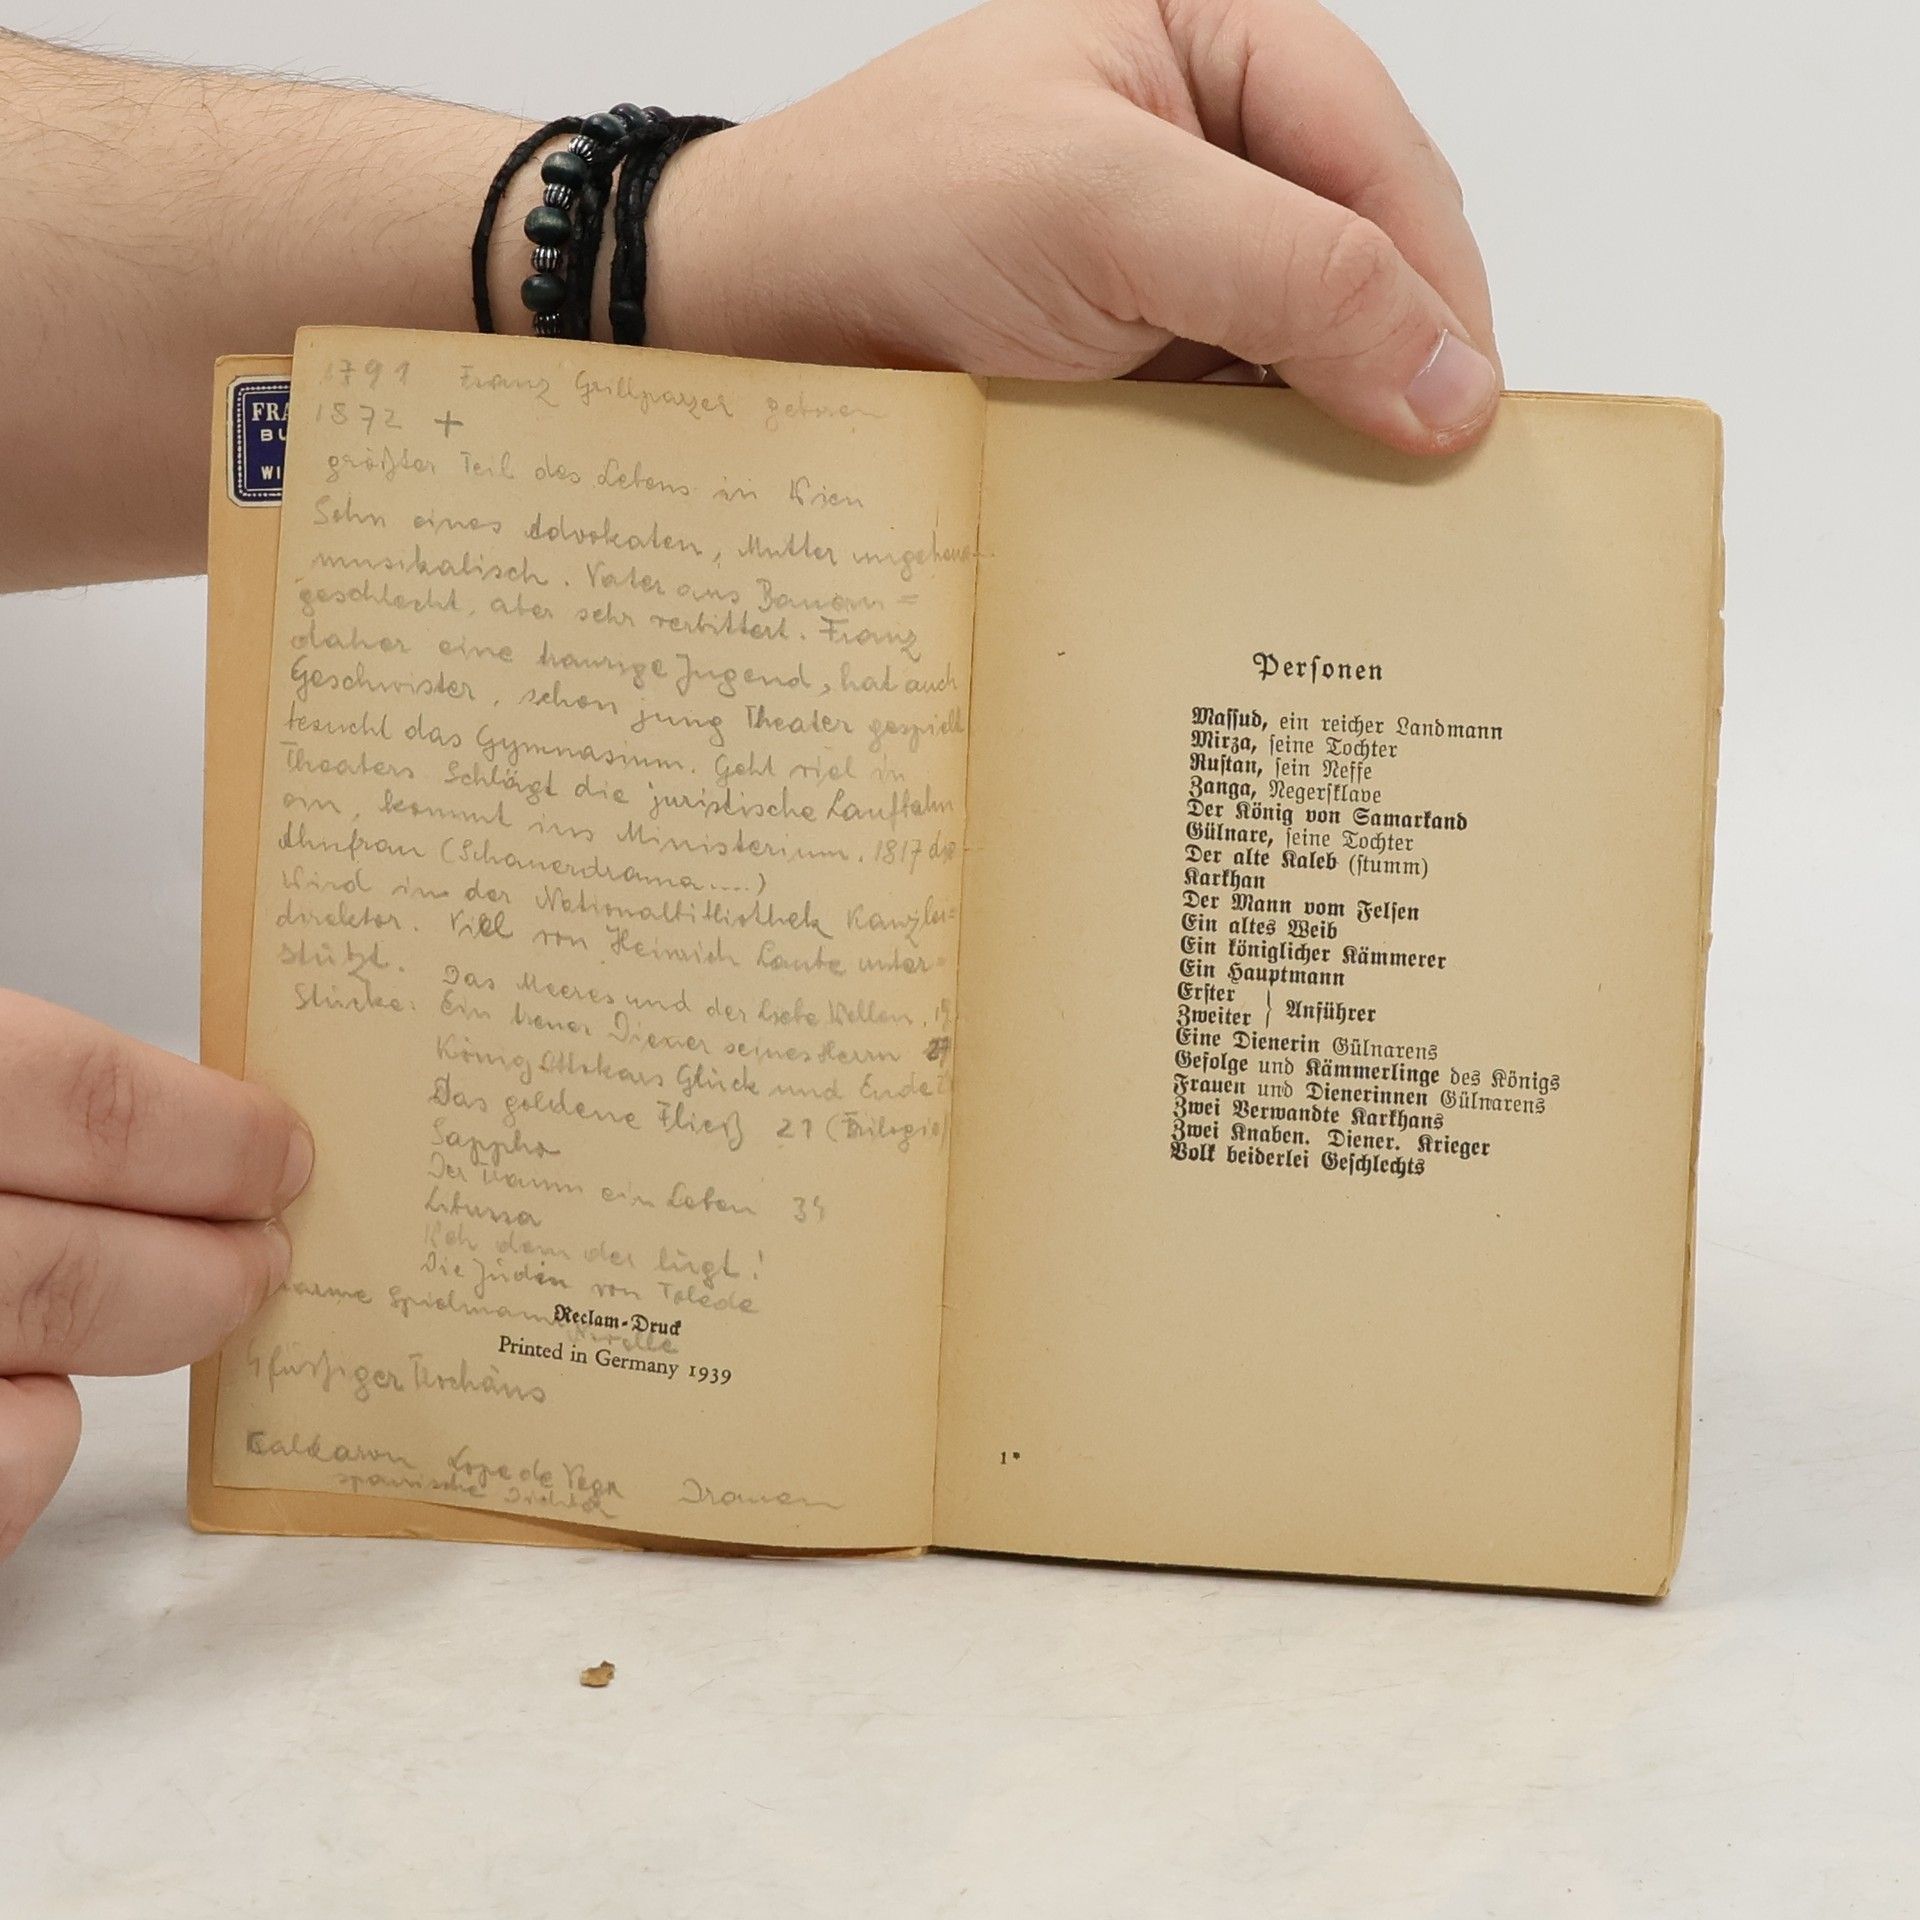 FRA
BU
WI
1791 Franz Grillparzer geboren
1872 +
größter Teil des Lebens in Wien
Sohn eines Advokaten, Mutter ungeheuer
musikalisch. Vater aus Bauern=
geschlecht, aber sehr verbittert. Franz
daher eine traurige Jugend, hat auch
Geschwister, schon jung Theater gespielt
besucht das Gymnasium. Geht viel in
Theaters Schlägt die juristische Laufbahn
ein, kommt ins Ministerium. 1817 die
Ahnfrau (Schauerdrama....)
Wird in der Nationalbibliothek Kanzlei=
direktor. Viel von Heinrich Laube unter=
stützt.
Stücke: Das Meeres und der Liebe Wellen.
Ein treuer Diener seines Herrn 27
König Ottokars Glück und Ende
Das goldene Fließ 21 (Trilogie)
Sappho
Der Traum ein Leben 34
Libussa
Weh dem der lügt!
Die Jüdin von Toledo
arme Spielmann Novelle
Reclam-Druck
Printed in Germany 1939
4 füßiger Trochäus
Calderon Lope de Vega Dramen
spanische Dichter
Personen
Massud, ein reicher Landmann
Mirza, seine Tochter
Rustan, sein Neffe
Zanga, Negersklave
Der König von Samarkand
Gülnare, seine Tochter
Der alte Kaleb (stumm)
Karkhan
Der Mann vom Felsen
Ein altes Weib
Ein königlicher Kämmerer
Ein Hauptmann
Erster } Anführer
Zweiter
Eine Dienerin Gülnarens
Gefolge und Kämmerlinge des Königs
Frauen und Dienerinnen Gülnarens
Zwei Verwandte Karkhans
Zwei Knaben. Diener. Krieger
Volk beiderlei Geschlechts
1*